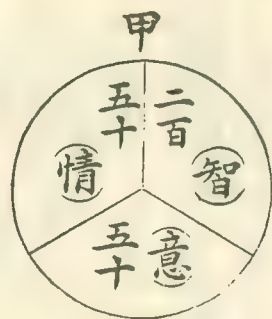 甲
二百
(智)
五十
(情)
五十
(意)